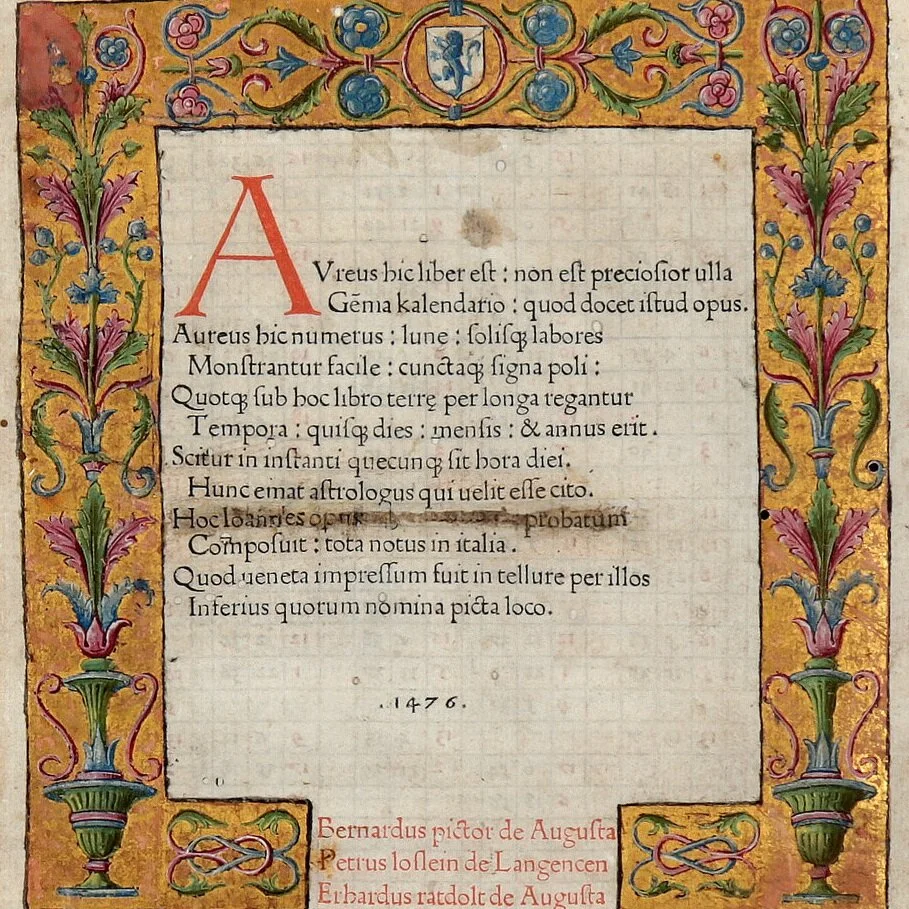 AVreus hic liber est : non est preciosior ulla
Gẽma kalendario : quod docet istud opus.
Aureus hic numerus : lune : solisqꝫ labores
Monstrantur facile : cunctaqꝫ signa poli :
Quotqꝫ sub hoc libro terrę per longa regantur
Tempora : quisqꝫ dies : mensis : & annus erit.
Scitur in instanti quecunqꝫ sit hora diei.
Hunc emat astrologus qui uelit esse cito.
Hoc Ioannes probatum
Composuit : tota notus in italia.
Quod ueneta impressum fuit in tellure per illos
Inferius quorum nomina picta loco.
.1476.
Bernardus pictor de Augusta
Petrus loslein de Langencen
Erhardus ratdolt de Augusta